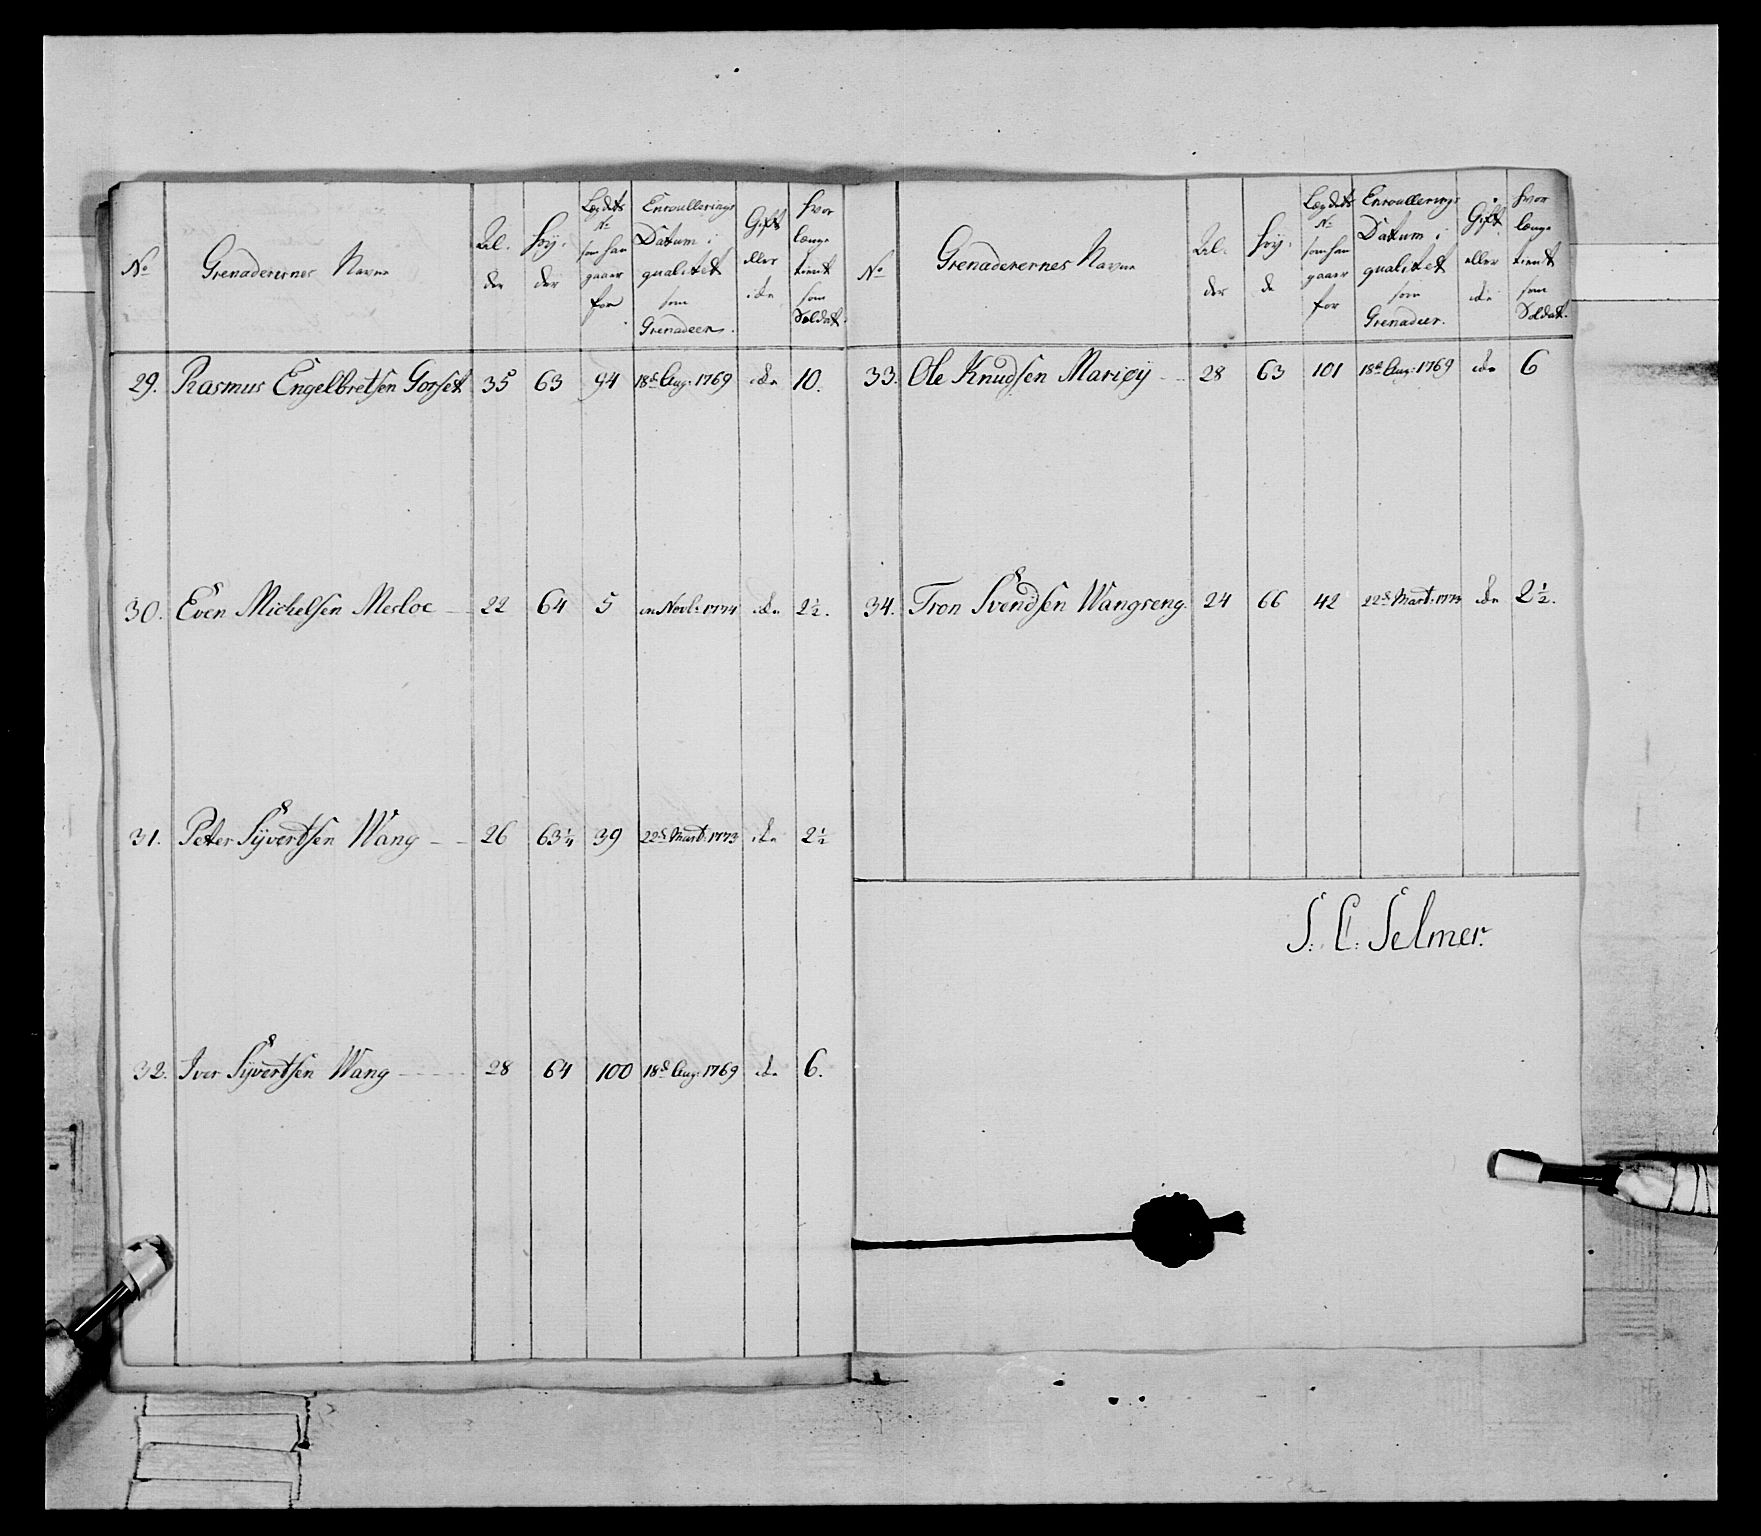 No Grenaderernes Navne Alder Høyder Lægdets No som han gaaer for Enroullerings Datum i qualitet som Grenadeer. Gift eller icke hvor længe tient som Soldat.
29. Rasmus Engelbretsen Gorset 35 63 94 18d Aug: 1769 icke 10.
30. Even Michelsen Mesloe 22 64 5 Novb: 1774 icke 2½.
31. Peter Syvertsen Wang 26 63¼ 39 22d Mart: 1773 icke 2½
32. Iver Syvertsen Wang 28 64 100 18d Aug: 1769 icke 6.
No Grenaderernes Navne Alder Høyde Lægdets No som han gaaer for Enroullerings Datum i qualitet som Grenadeer. Gift eller icke hvor længe tient som Soldat.
33. Ole Knudsen Mariøy 28 63 101 18d Aug: 1769 icke 6
34. Tron Svendsen Wangseng. 24 66 42 22d Mart: 1773 icke 2½.
S. C: Selmer.